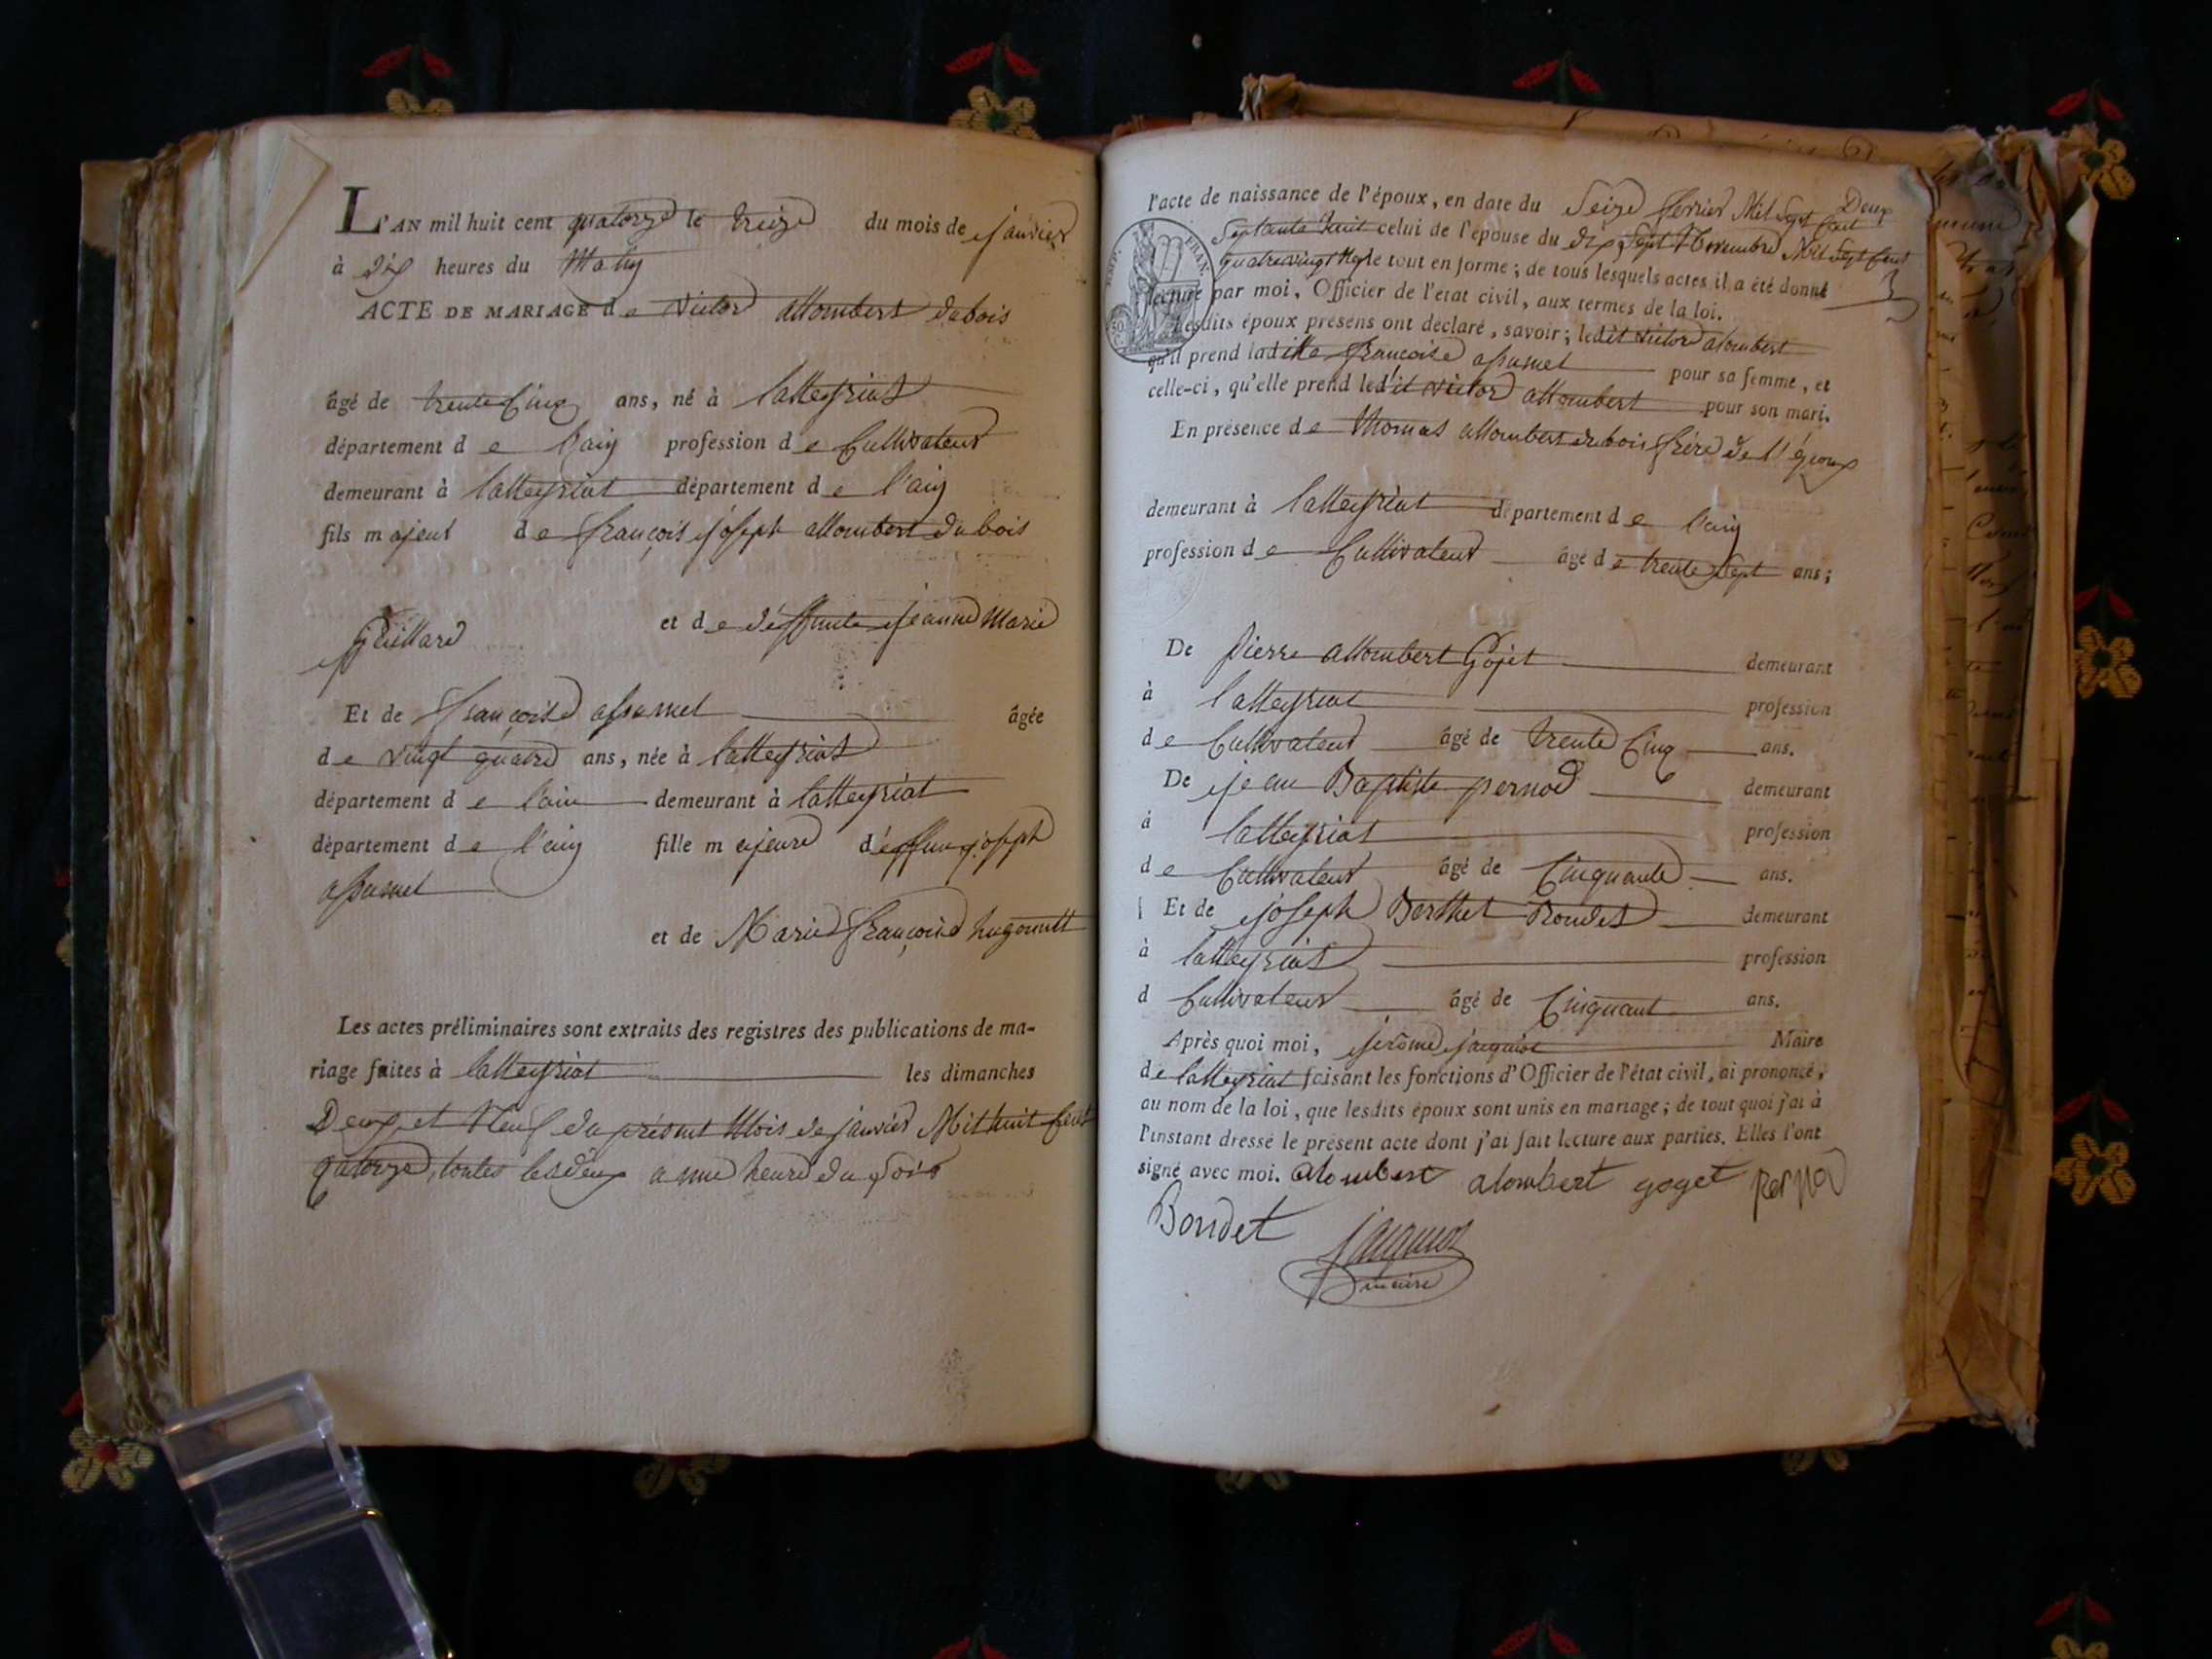 L'AN mil huit cent quatorze le treize du mois de janvier
à dix heures du Matin
ACTE DE MARIAGE de victor allombert dubois
âgé de trente Cinq ans, né à Latteyriat
département de l'ain profession de Cultivateur
demeurant à latteyriat département de l'ain
fils majeur de françois joseph allombert dubois
et de déffunte jeanne Marie
Et de françoise assumel âgée
de vingt quatre ans, née à latteyriat
département de l'ain demeurant à latteyriat
département de l'ain fille majeure déffun joseph
assumel
et de Marie françoise hugonnet
Les actes préliminaires sont extraits des registres des publications de ma-
riage faites à latteyriat les dimanches
Deux et Neuf du présent Mois de janvier Mil huit Cent
quatorze, toutes les deux a une heure du soir
l'acte de naissance de l'époux, en date du Seize fevrier Mil Sept Cent
Deux
Septante huit celui de l'épouse du dix Sept Novembre Mil Sept Cent
quatrevingt Neuf le tout en forme; de tous lesquels actes il a été donné
3
lecture par moi, Officier de l'état civil, aux termes de la loi.
Lesdits époux présens ont déclaré, savoir; ledit victor alombert
qu'il prend laditte françoise assumel pour sa femme, et
celle-ci, qu'elle prend ledit victor allombert pour son mari.
En présence de thomas allombert dubois frère de l'époux
demeurant à latteyriat département de l'ain
profession de Cultivateur âgé de trente Sept ans;
De pierre allombert Gojet demeurant
à latteyriat profession
de Cultivateur âgé de trente Cinq ans.
De jean Baptiste pernod demeurant
à latteyriat profession
de Cultivateur âgé de Cinquante ans.
Et de joseph Berthet Bondet demeurant
à latteyriat profession
d Cultivateur âgé de Cinquant ans.
Après quoi moi, jerome jacquiot Maire
de latteyriat faisant les fonctions d'Officier de l'état civil, ai prononcé,
au nom de la loi, que lesdits époux sont unis en mariage; de tout quoi j'ai à
l'instant dressé le présent acte dont j'ai fait lecture aux parties. Elles l'ont
signé avec moi. alombert alombert goget pernod
Bondet
maire